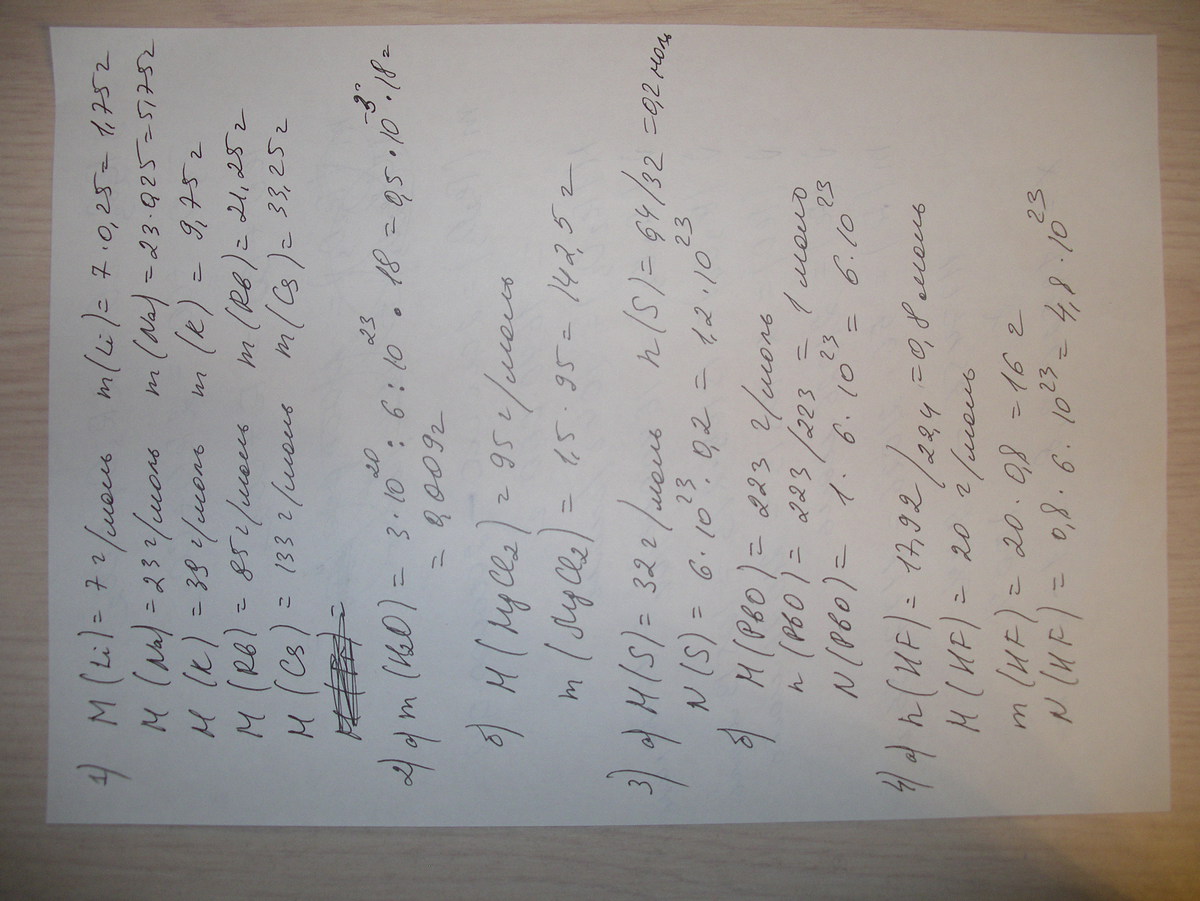 1) M (Li) = 7 г/моль m(Li) = 7 · 0,25 = 1,75 г
M (Na) = 23 г/моль m(Na) = 23·0,25 = 5,75 г
M (K) = 39 г/моль m(K) = 9,75 г
M (Rb) = 85 г/моль m(Rb) = 21,25 г
M (Cs) = 133 г/моль m(Cs) = 33,25 г
2) а) m(H₂O) = 3·10²⁰ : 6 : 10²³ · 18 = 0,5·10⁻³·18 =
= 0,009 г
б) M(MgCl₂) = 95 г/моль
m(MgCl₂) = 1,5 · 95 = 142,5 г
3) а) M(S) = 32 г/моль n(S) = 64/32 = 0,2 моль
N(S) = 6·10²³·0,2 = 1,2·10²³
б) M(PbO) = 223 г/моль
n(PbO) = 223/223 = 1 моль
N(PbO) = 1 · 6·10²³ = 6·10²³
4) а) n(HF) = 17,92/22,4 = 0,8 моль
M(HF) = 20 г/моль
m(HF) = 20 · 0,8 = 16 г
N(HF) = 0,8 · 6 · 10²³ = 4,8 · 10²³